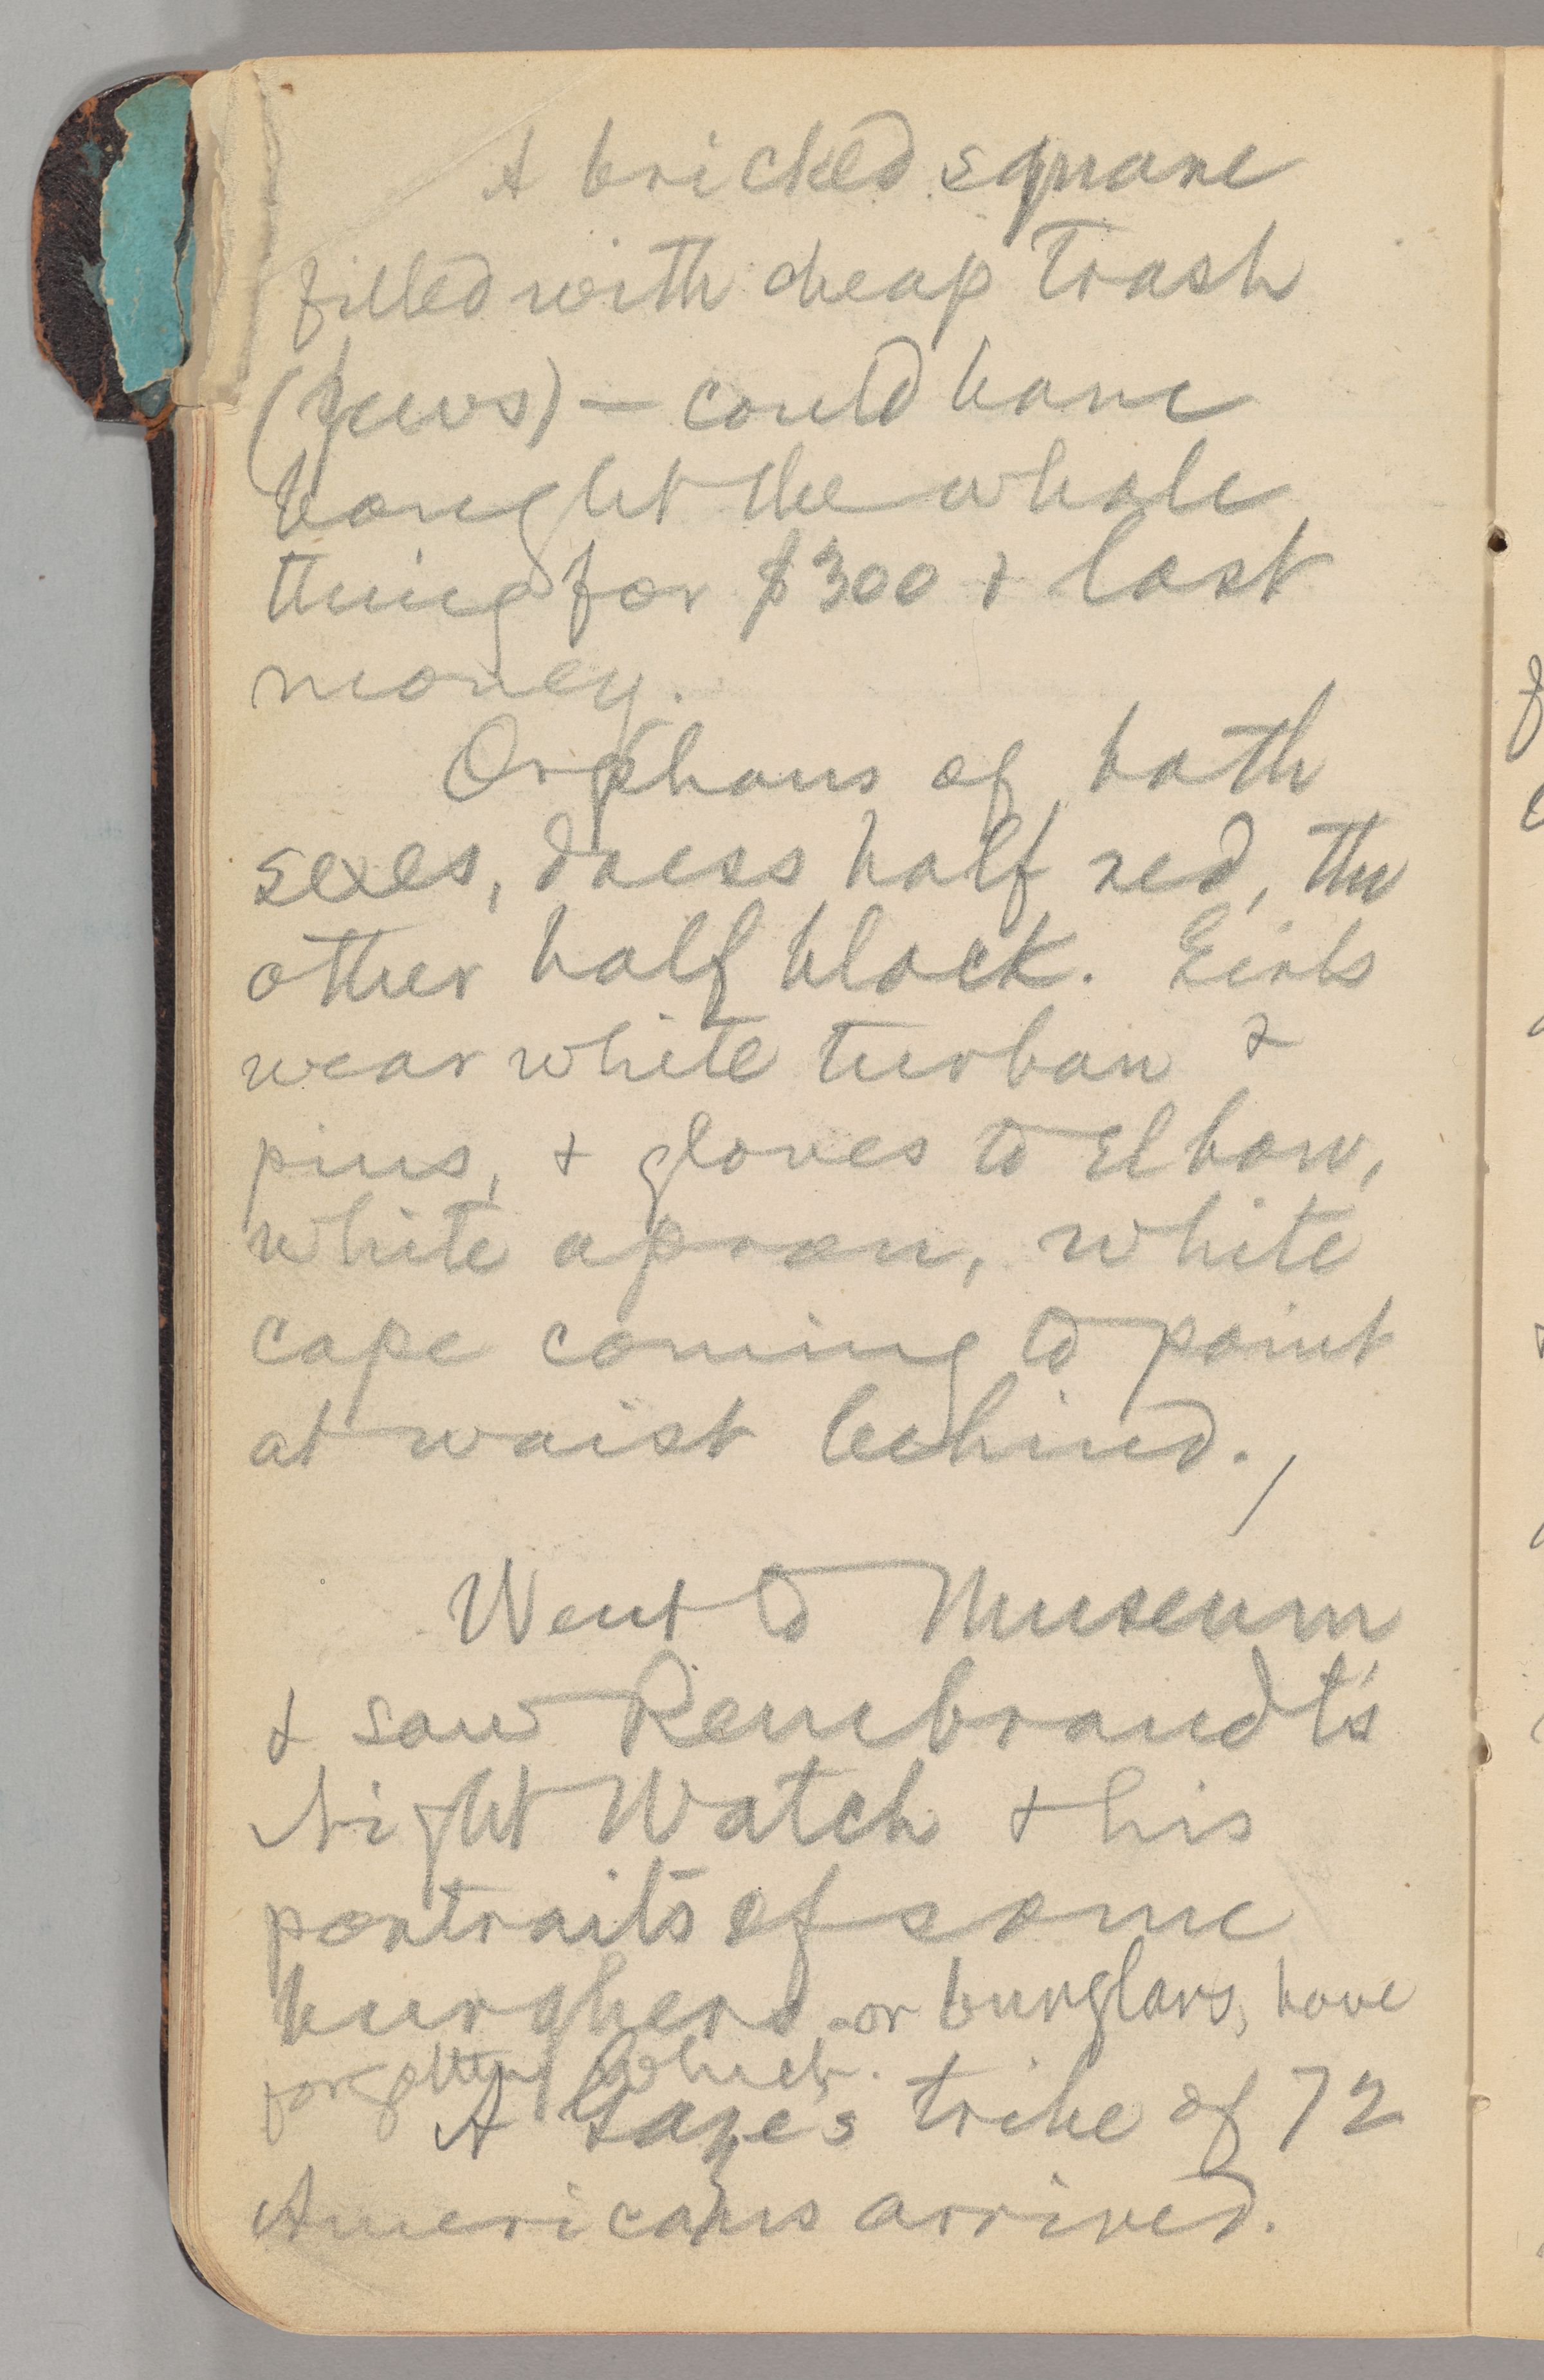 A bricked square
filled with cheap trash
(Jews) — could have
bought the whole
thing for $300 & lost
money.
Orphans of both
sexes, dress half red, the
other half black. Girls
wear white turban &
pins, & gloves to elbow,
white apron, white
cape coming to point
at waist behind.
Went to Museum
& saw Rembrandt's
Night Watch & his
portraits of some
burghers or burglars, have
forgotten which.
A Gaze's tribe of 72
Americans arrived.